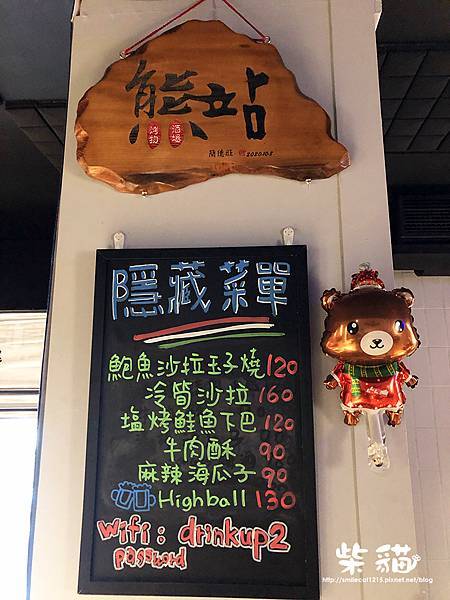 熊站
烤物 酒場
簡德莊 2020.10.8
隱藏菜單
鮑魚沙拉玉子燒 120
冷筍沙拉 160
塩烤鮭魚下巴 120
牛肉酥 90
麻辣海瓜子 90
Highball 130
wifi : drinkup2
password
柴貓
http://smilecat1215.pixnet.net/blog